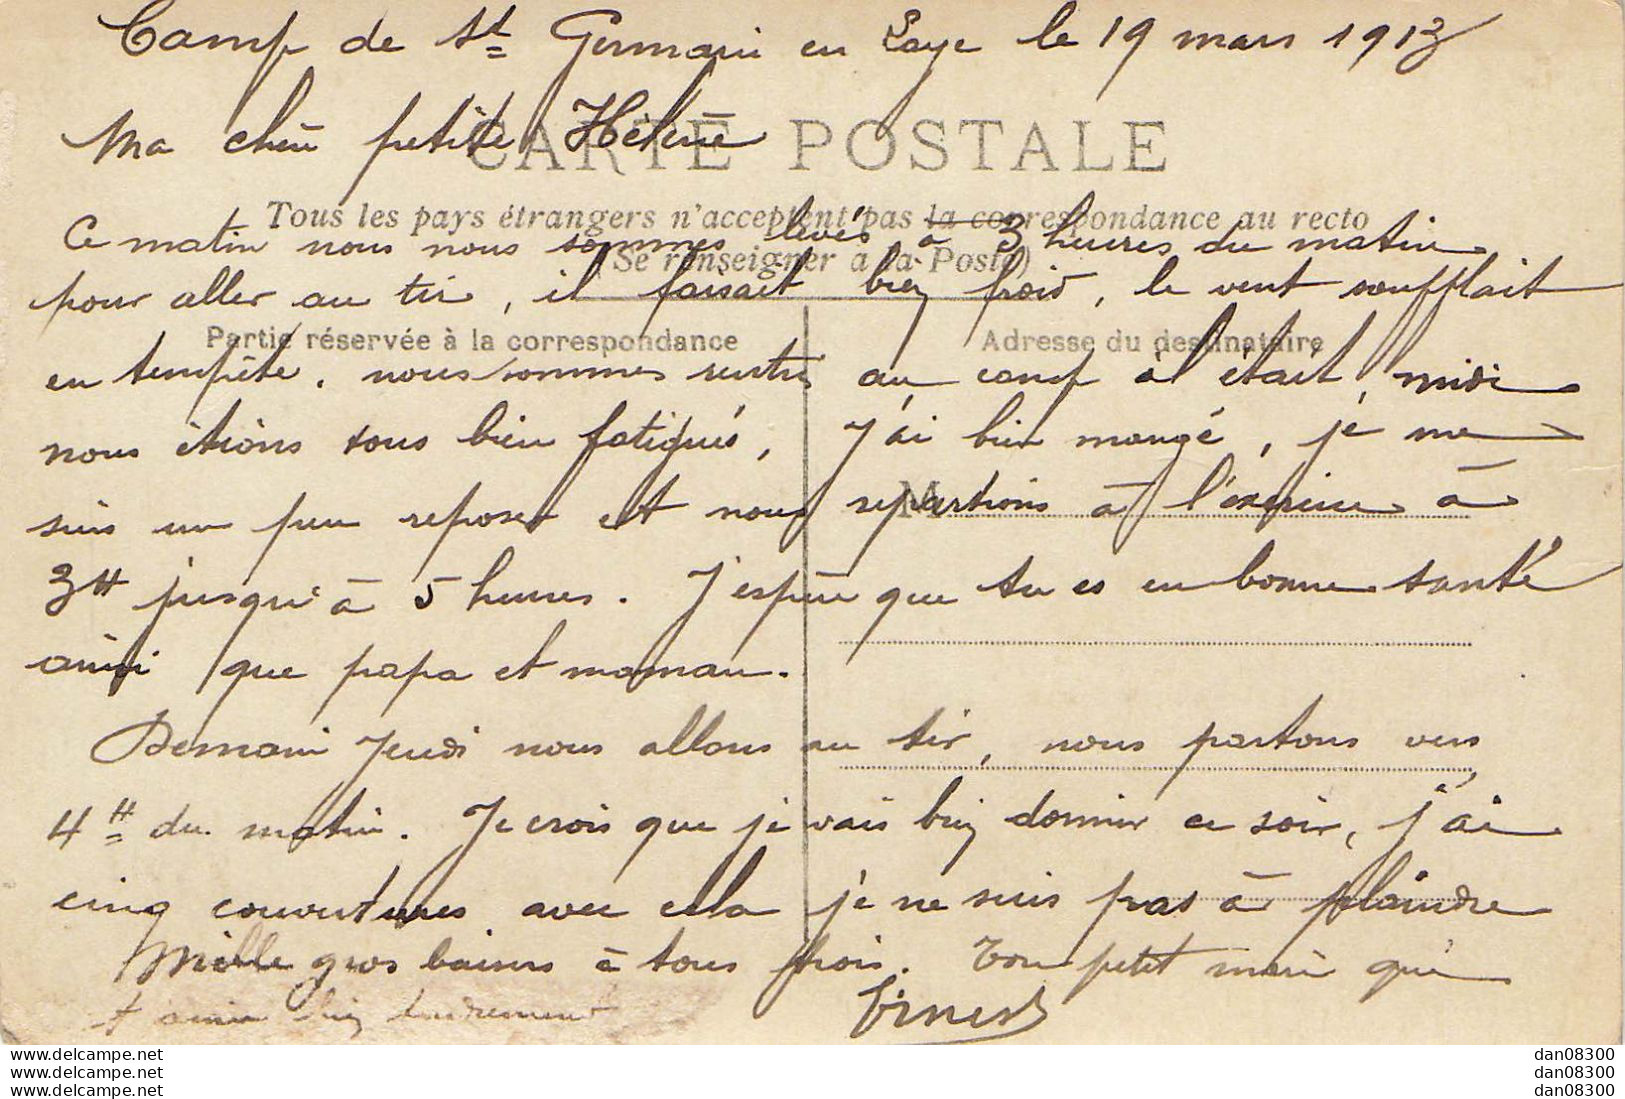 Camp de St Germain en Laye le 19 mars 1913
Ma chère petite Hélène
CARTE POSTALE
Tous les pays étrangers n'acceptent pas la correspondance au recto
(Se renseigner à la Poste)
Ce matin nous nous sommes levés à 3 heures du matin
pour aller au tir, il faisait bien froid, le vent soufflait
Partie réservée à la correspondance
Adresse du destinataire
en tempête. nous sommes rentrés au camp il était midi
nous étions tous bien fatigués, j'ai bien mangé, je me
suis un peu reposer et nous repartions à l'exercice à
M
3H jusqu'à 5 heures. J'espère que tu es en bonne santé
ainsi que papa et maman.
Demain Jeudi nous allons au tir, nous partons vers
4H du matin. Je crois que je vais bien dormir ce soir, j'ai
cinq couvertures avec cela je ne suis pas à plaindre
Mille gros baisers à tous trois. Ton petit mari qui
t'aime bien tendrement Ernest
www.delcampe.net
www.delcampe.net
www.delcampe.net
dan08300
dan08300
dan08300